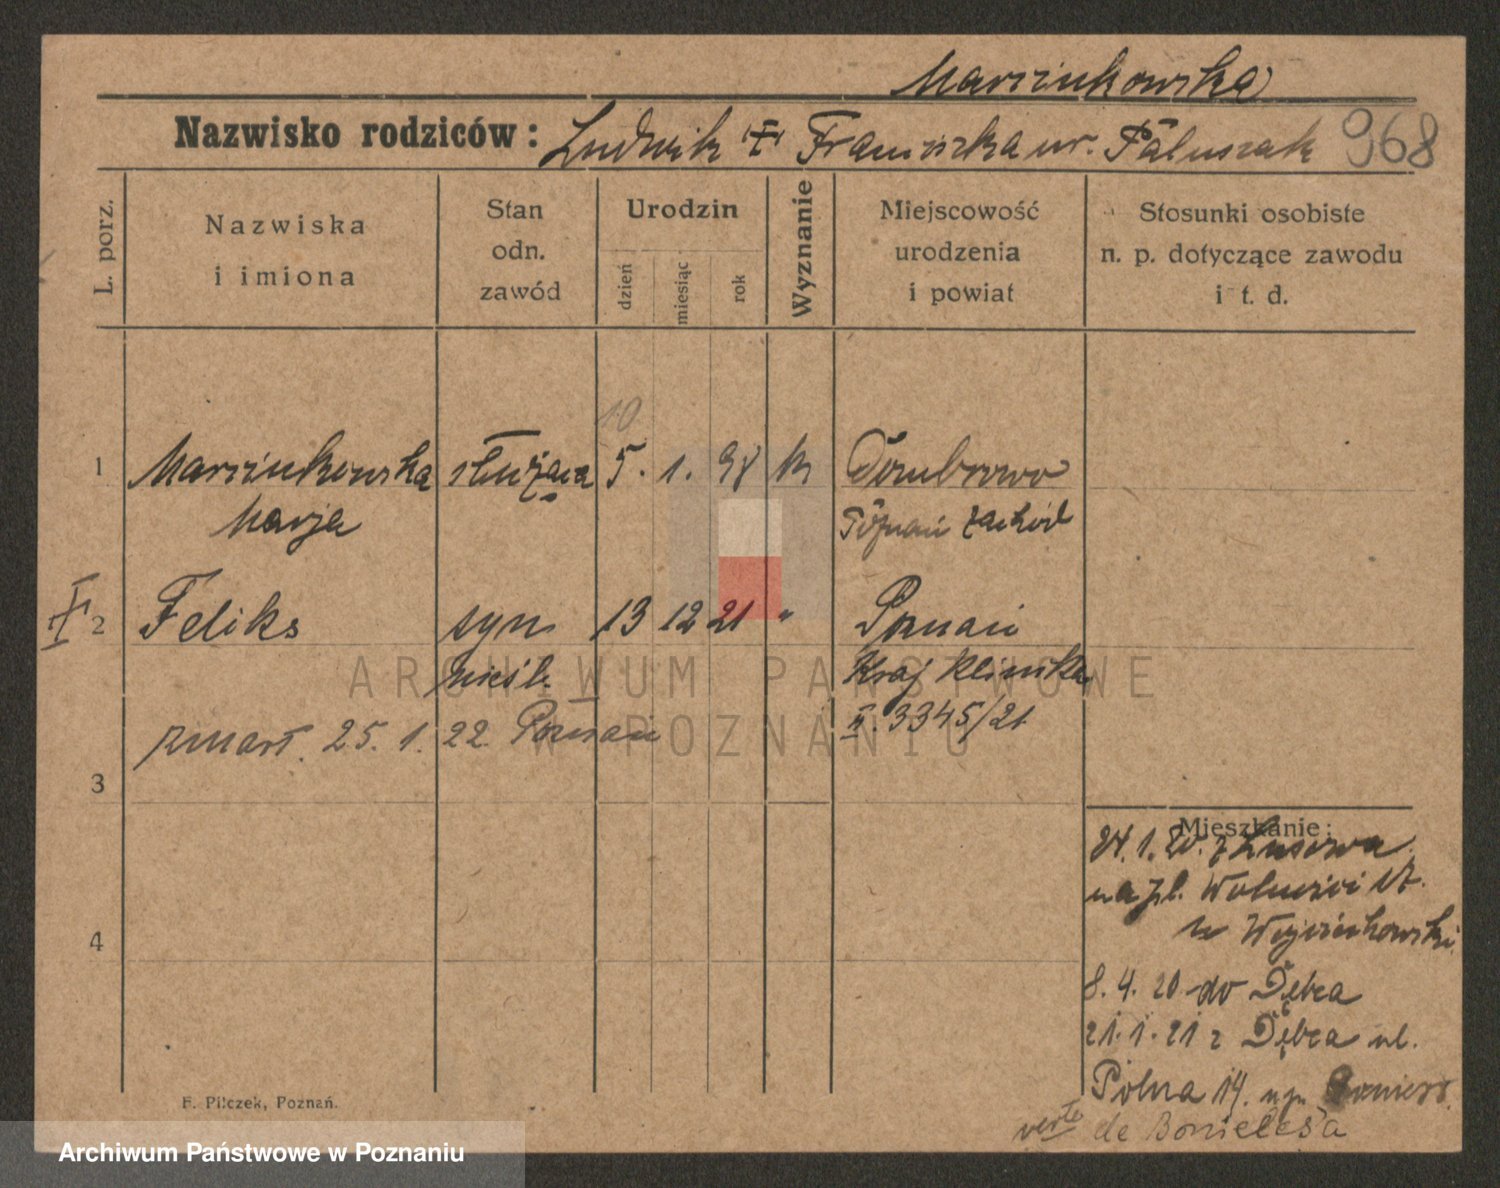 Marcinkowska
Nazwisko rodziców: Ludwik Franciszka ur. Paluszak 968
L. porz.
Nazwiska
i imiona
Stan
odn.
zawód
Urodzin
dzień
miesiąc
rok
Wyznanie
Miejscowość
urodzenia
i powiat
Stosunki osobiste
n. p. dotyczące zawodu
i t. d.
10
1 Marcinkowska służąca 5. 1. 98 k Dombrowo
Marja Poznań zachód
2 Feliks syn 13 12 21 " Poznań
nieśl. Kraj klinika
zmarł. 25. 1. 22 Poznań 3345/21
3
4
Mieszkanie:
24. 1. 20. z Lusowa
na pl. Wolności 17.
u Wojciechowski
8. 4. 20 do Dębca
21. 1. 21 z Dębca ul.
Polna 14.
verte de
F. Pilczek, Poznań.
ARCHIWUM PAŃSTWOWE
W POZNANIU
Archiwum Państwowe w Poznaniu